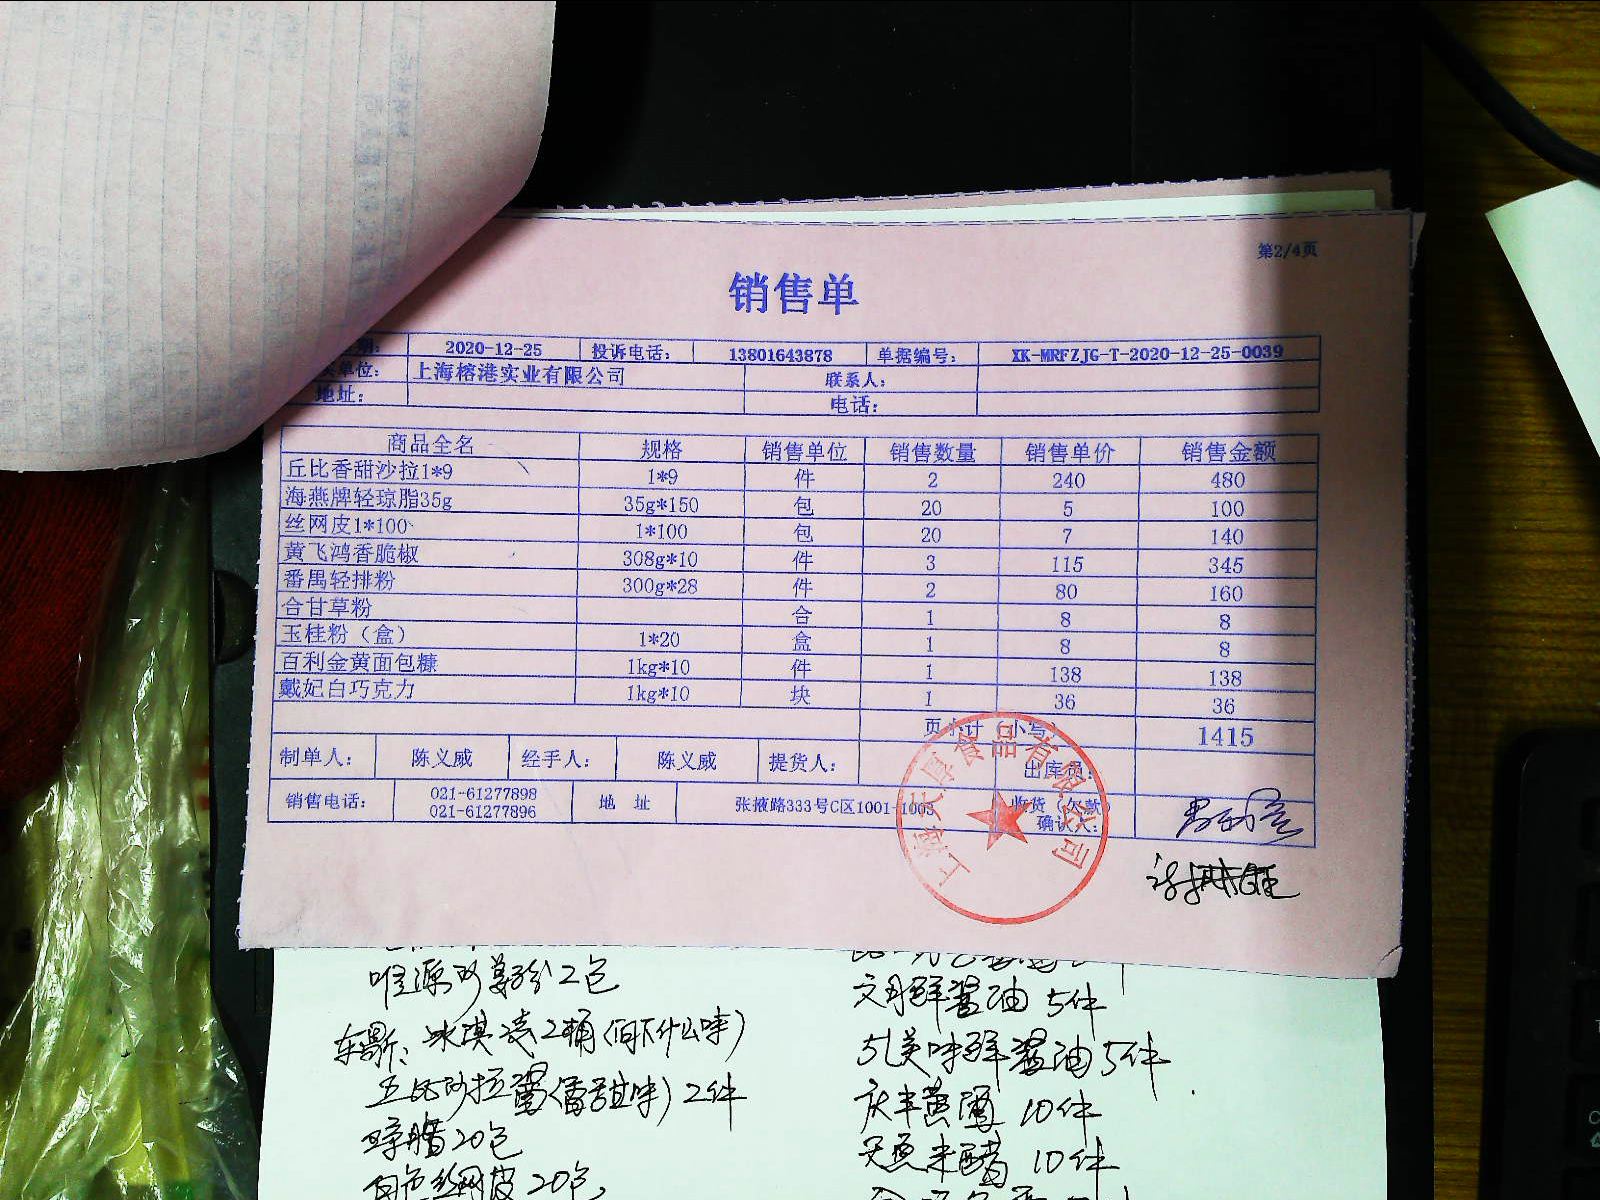 第2/4页
销售单
期： 2020-12-25 投诉电话： 13801643878 单据编号： XK-MRFZJG-T-2020-12-25-0039
单位： 上海榕港实业有限公司 联系人：
地址： 电话：
商品全名 规格 销售单位 销售数量 销售单价 销售金额
丘比香甜沙拉1*9 1*9 件 2 240 480
海燕牌轻琼脂35g 35g*150 包 20 5 100
丝网皮1*100 1*100 包 20 7 140
黄飞鸿香脆椒 308g*10 件 3 115 345
番禺轻排粉 300g*28 件 2 80 160
合甘草粉 合 1 8 8
玉桂粉（盒） 1*20 盒 1 8 8
百利金黄面包糠 1kg*10 件 1 138 138
戴妃白巧克力 1kg*10 块 1 36 36
页小计（小写） 1415
制单人： 陈义威 经手人： 陈义威 提货人： 出库员：
销售电话： 021-61277898 021-61277896 地 址 张掖路333号C区1001-1003 收货（欠款）确认人：
上海 厚食品有限公司
2包
冰淇 2桶（问下什么味）
丘比沙拉酱（香甜味）2件
20包
白色丝网皮20包
鲜酱油 5件
美味鲜酱油5件
10件
米醋 10件